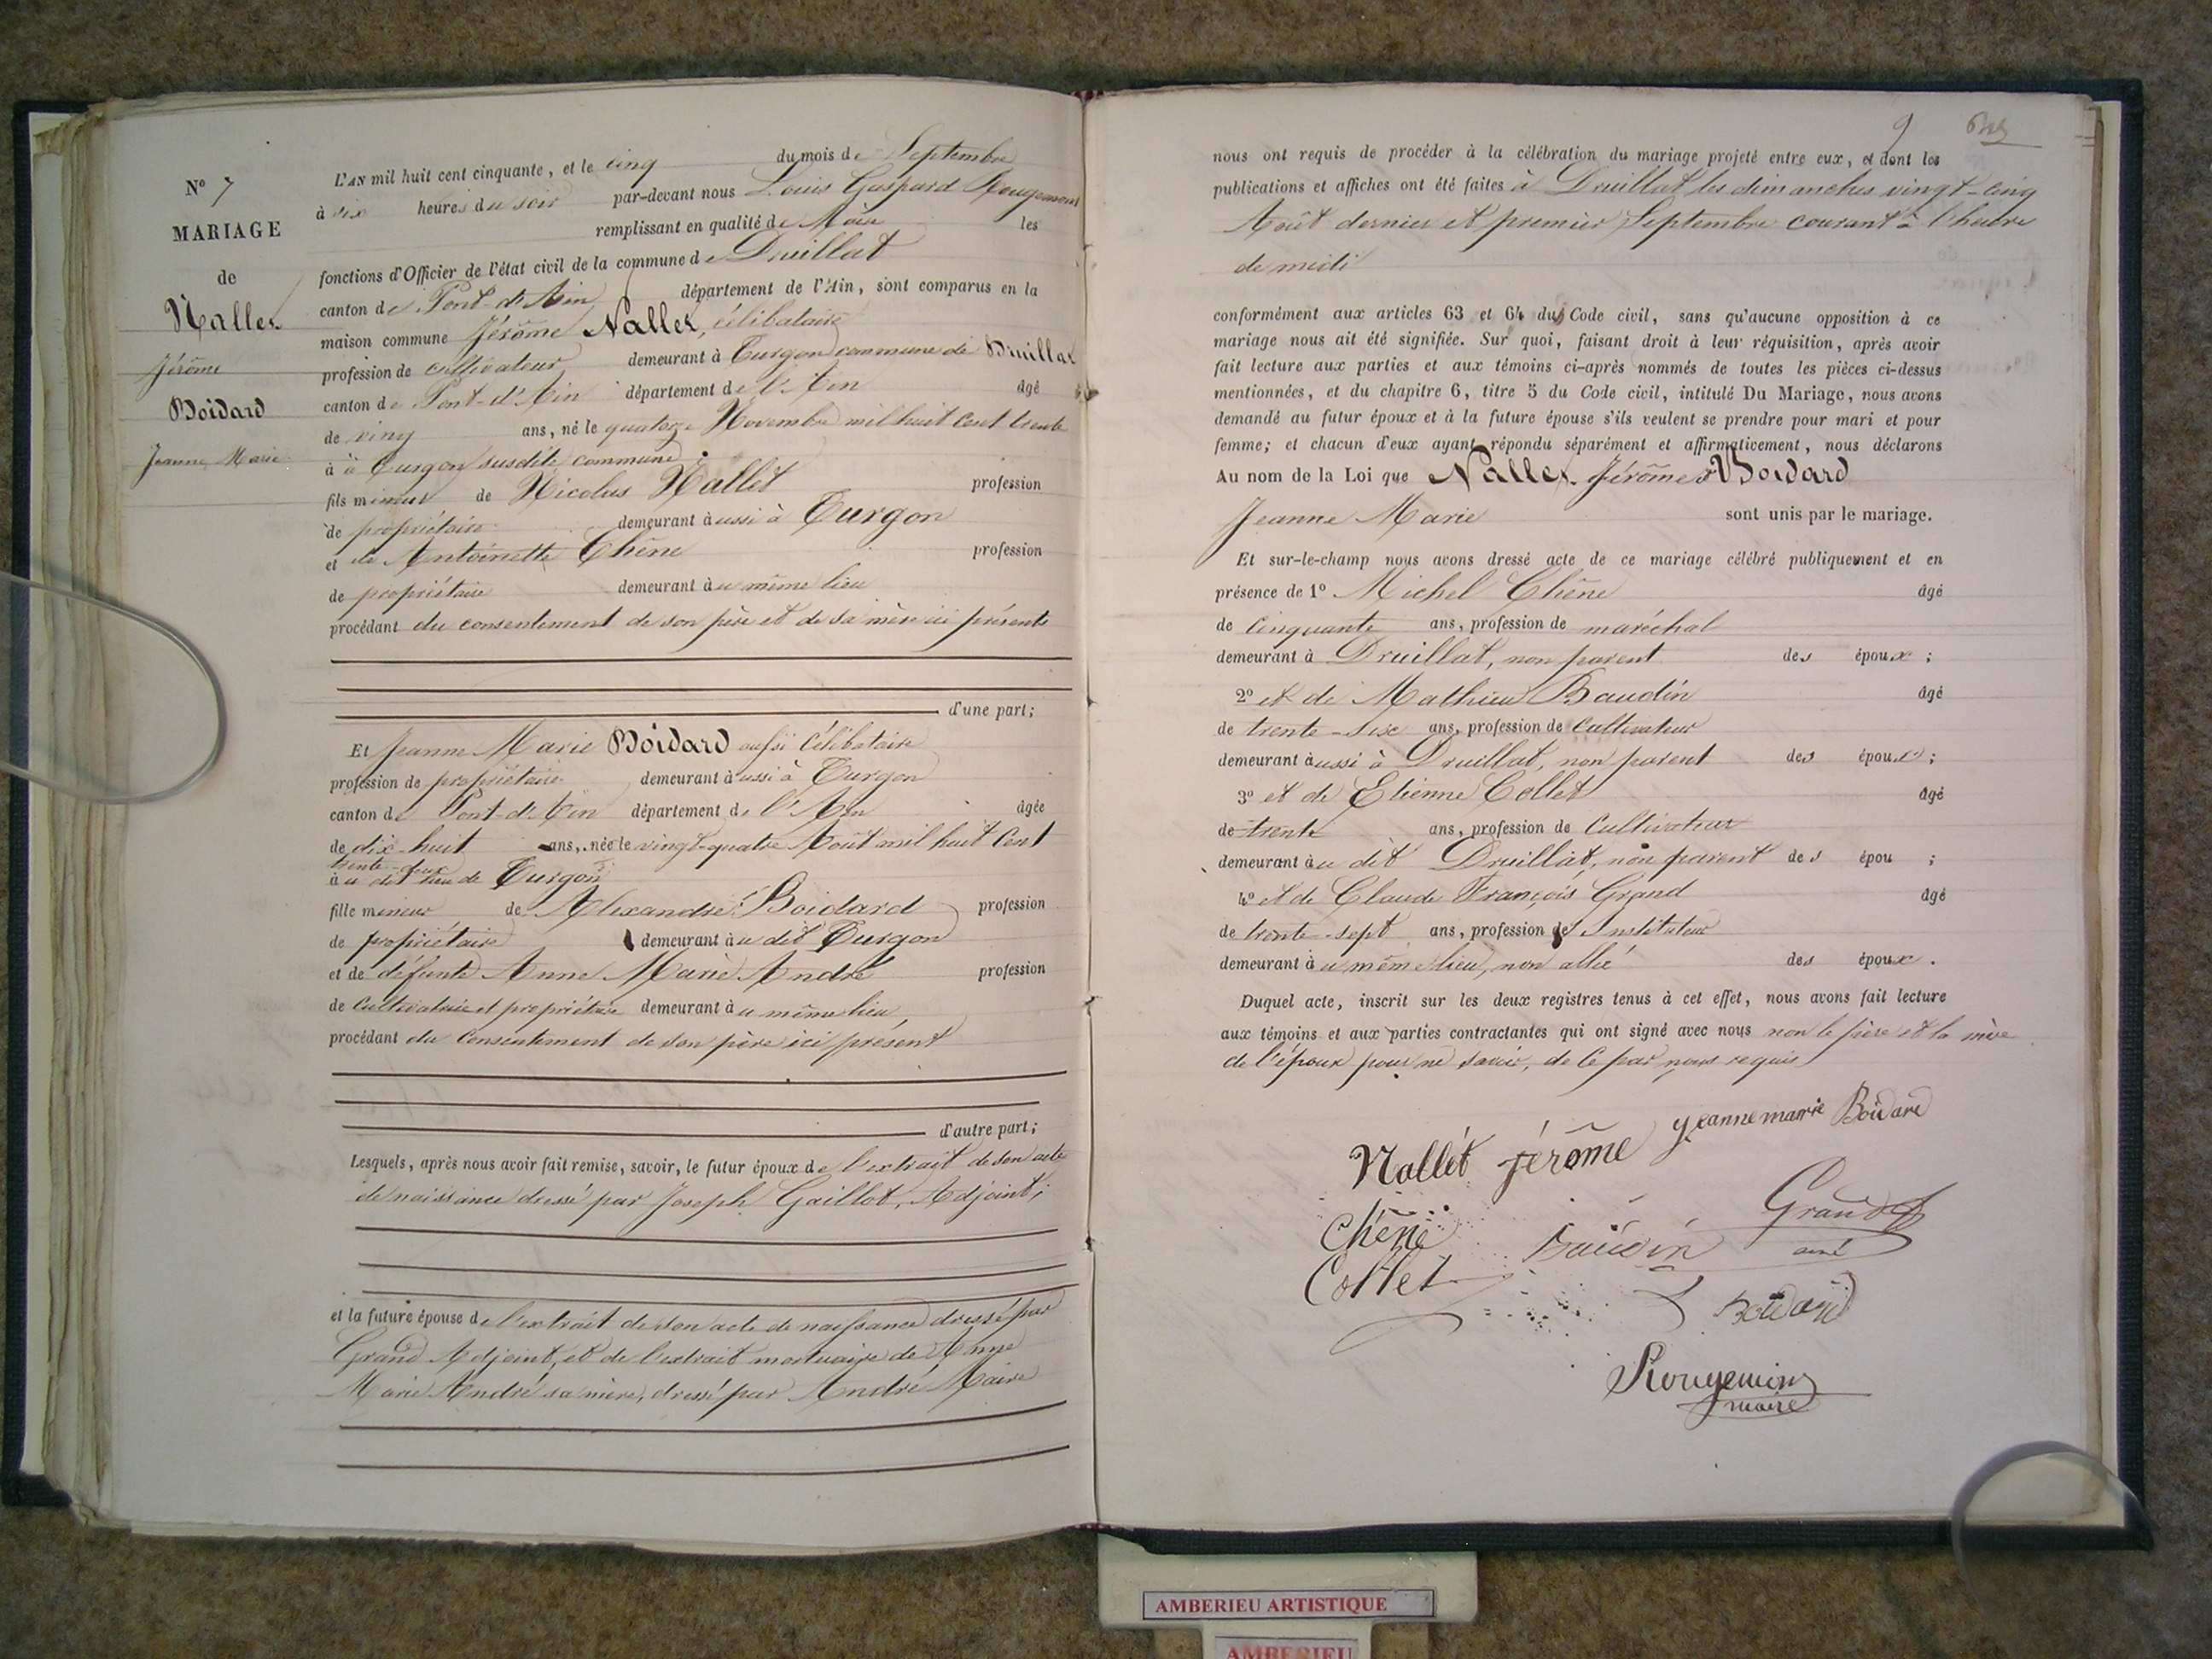 N° 7
MARIAGE
de
Nallet
Jérôme
Boidard
Jeanne Marie
L'AN mil huit cent cinquante, et le cinq du mois de Septembre
à six heures du soir par-devant nous Louis Gaspard Rougemont
remplissant en qualité de Maire les
fonctions d'Officier de l'état civil de la commune de Druillat
canton de Pont-d'Ain département de l'Ain, sont comparus en la
maison commune Jérôme Nallet, célibataire
profession de cultivateur demeurant à Turgon commune de Druillat
canton de Pont-d'Ain département de l'Ain âgé
de vingt ans, né le quatorze Novembre mil huit cent trente
à à Turgon susdite commune
fils mineur de Nicolas Nallet profession
de propriétaire demeurant aussi à Turgon
et de Antoinette Chêne profession
de propriétaire demeurant au même lieu
procédant du consentement de son père et de sa mère ici présents
d'une part;
Et Jeanne Marie Boidard aussi célibataire
profession de propriétaire demeurant aussi à Turgon
canton de Pont-d'Ain département de l'Ain âgée
de dix-huit ans, née le vingt-quatre Août mil huit cent
trente-deux
au dit lieu de Turgon
fille mineur de Alexandre Boidard profession
de propriétaire demeurant au dit Turgon
et de défunte Anne Marie André profession
de cultivatrice et propriétaire demeurant au même lieu,
procédant du consentement de son père ici présent
d'autre part;
Lesquels, après nous avoir fait remise, savoir, le futur époux de l'extrait de son acte
de naissance dressé par Joseph Gaillot, Adjoint;
et la future épouse de l'extrait de son acte de naissance dressé par
Grand Adjoint, et de l'extrait mortuaire de Anne
Marie André sa mère, dressé par André Maire
9
nous ont requis de procéder à la célébration du mariage projeté entre eux, et dont les
publications et affiches ont été faites à Druillat les dimanches vingt-cinq
Août dernier et premier Septembre courant à l'heure
de midi
conformément aux articles 63 et 64 du Code civil, sans qu'aucune opposition à ce
mariage nous ait été signifiée. Sur quoi, faisant droit à leur réquisition, après avoir
fait lecture aux parties et aux témoins ci-après nommés de toutes les pièces ci-dessus
mentionnées, et du chapitre 6, titre 5 du Code civil, intitulé Du Mariage, nous avons
demandé au futur époux et à la future épouse s'ils veulent se prendre pour mari et pour
femme; et chacun d'eux ayant répondu séparément et affirmativement, nous déclarons
Au nom de la Loi que Nallet Jérôme et Boidard
Jeanne Marie sont unis par le mariage.
Et sur-le-champ nous avons dressé acte de ce mariage célébré publiquement et en
présence de 1° Michel Chêne âgé
de cinquante ans, profession de maréchal
demeurant à Druillat, non parent des époux;
2° et de Mathieu Baudin âgé
de trente-six ans, profession de cultivateur
demeurant aussi à Druillat, non parent des époux;
3° et de Etienne Collet âgé
de trente ans, profession de cultivateur
demeurant au dit Druillat, non parent des épou ;
4° et de Claude François Grand âgé
de trente-sept ans, profession d'Instituteur
demeurant au même lieu, non allié des époux.
Duquel acte, inscrit sur les deux registres tenus à cet effet, nous avons fait lecture
aux témoins et aux parties contractantes qui ont signé avec nous non le père et la mère
de l'époux pour ne savoir, de ce par nous requis
jeannemarrie Boidard
Nallét jérôme
Grand
ainé
Chêne
Baudin
Collet
Boidard
Rougemont
maire
AMBERIEU ARTISTIQUE
AMBERIEU